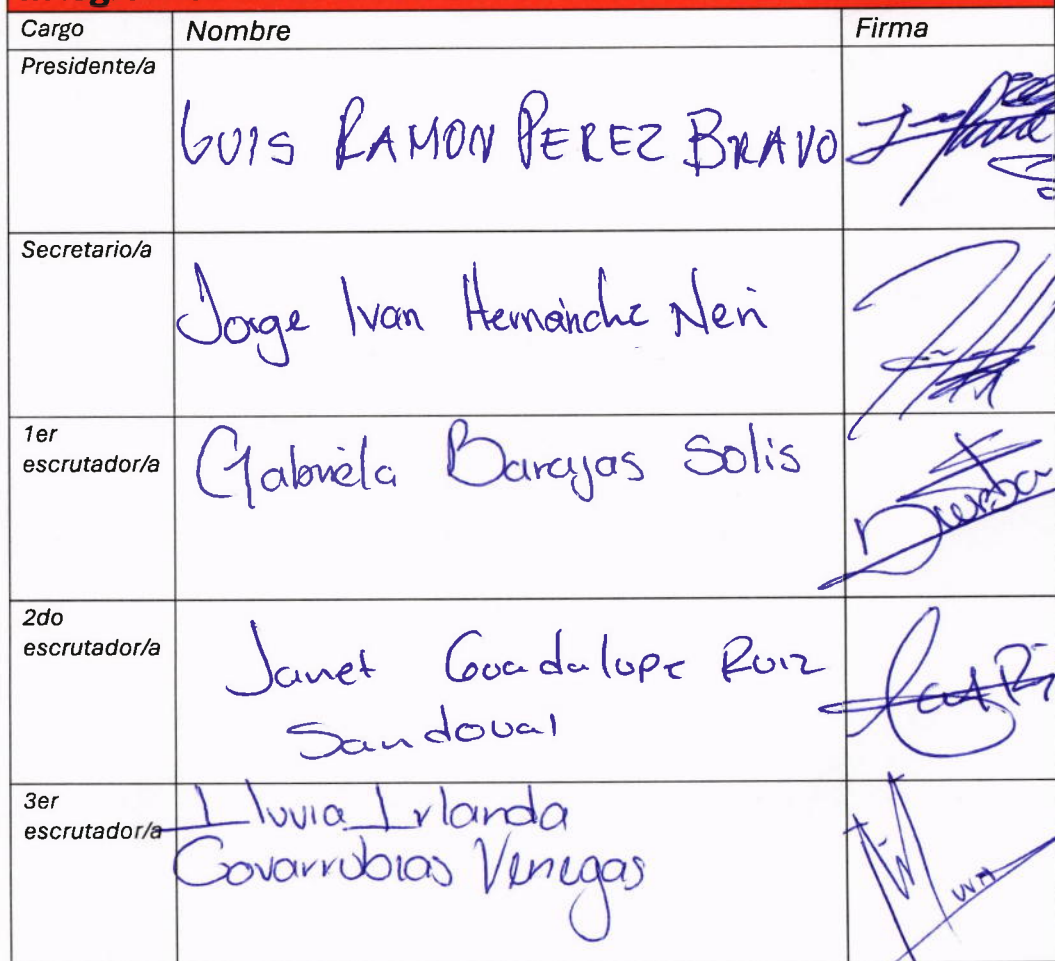 Cargo Nombre Firma
Presidente/a
LUIS RAMON PEREZ BRAVO
Secretario/a
Jorge Ivan Hernández Neri
1er
escrutador/a
Gabriela Barajas Solis
2do
escrutador/a
Janet Guadalupe Ruiz
Sandoval
3er
escrutador/a
Lluvia Irlanda
Covarrubias Venegas